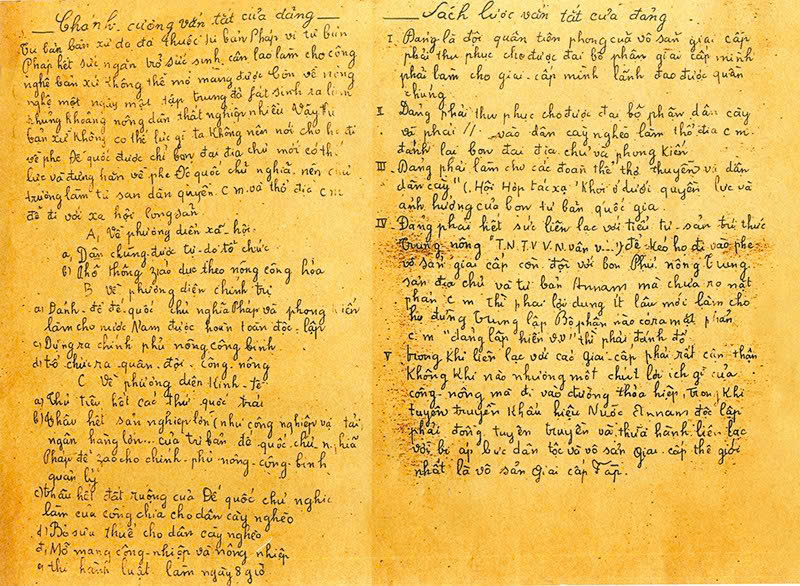 Chánh cương vắn tắt của đảng
Tư bản bản xứ đã thuộc tư bản Pháp vì tư bản
Pháp hết sức ngăn trở sức sinh sản làm cho công
nghệ bản xứ không thể mở mang được. Còn về nông
nghệ một ngày một tập trung đã phát sinh ra lắm
khủng hoảng nông dân thất nghiệp nhiều. Vậy tư
bản xứ không có thế lực gì ta không nên nói cho họ đi
về phe đế quốc được chỉ bọn đại địa chủ mới có thế
lực và đứng hẳn về phe đế quốc chủ nghĩa, nên chủ
trương làm tư sản dân quyền c.m. và thổ địa c.m.
để đi tới xã hội cộng sản.
A, Về phương diện xã hội.
a, Dân chúng được tự do tổ chức
b) Phổ thông giáo dục theo nông công hóa
B Về phương diện chính trị
a) Đánh đổ đế quốc chủ nghĩa Pháp và phong kiến
làm cho nước Nam được hoàn toàn độc lập
c) Dựng ra chính phủ nông công binh
d) tổ chức ra quân đội công nông
C Về phương diện kinh tế
a) Thủ tiêu hết các thứ quốc trái
b) thâu hết sản nghiệp lớn (như công nghiệp vận tải
ngân hàng lớn... của tư bản đế quốc chủ nghĩa
Pháp để giao cho chính phủ nông-công-binh
quản lý
c) thâu hết đất ruộng của Đế quốc chủ nghĩa
làm của công chia cho dân cày nghèo
d) Bỏ sưu thuế cho dân cày nghèo
đ) Mở mang công-nghiệp và nông nghiệp
e) thi hành luật làm ngày 8 giờ
Sách lược vắn tắt của đảng
I. Đảng là đội quân tiên phong của vô sản giai cấp
phải thu phục cho được đại bộ phận giai cấp mình
phải làm cho giai-cấp mình lãnh đạo được quần
chúng.
II Đảng phải thu phục cho được đại bộ phận dân cày
và phải // vào dân cày nghèo làm thổ địa c m.
đánh lại bọn đại địa chủ và phong kiến
III Đảng phải làm cho các đoàn thể thợ thuyền và dân
dân cày" (. Hội Hợp tác xạ Khỏi ở dưới quyền lực và
ảnh hưởng của bọn tư bản quốc gia.
IV Đảng phải hết sức liên lạc với tiểu tư-sản trí thức
trung nông "T.N.T.V V.N.vân v...") để kéo họ đi vào phe
vô sản giai cấp còn đối với bọn Phú nông trung
sản địa chủ và tư bản Annam mà chưa rõ mặt
phản c m thì phải lợi dụng ít lâu mới làm cho
họ đứng trung lập Bộ phận nào đã ra mặt phản
c.m "đảng lập hiến v.v" thì phải đánh đổ
V trong khi liên lạc với các giai-cấp phải rất cẩn thận
không khi nào nhường một chút lợi ích gì của
công-nông mà đi vào đường thỏa hiệp, trong khi
tuyên truyền khẩu hiệu Nước Annam độc lập
phải đồng tuyên truyền và thừa hành liên lạc
với bị áp bức dân tộc và vô sản giai cấp thế giới
nhất là vô sản giai cấp Fáp.